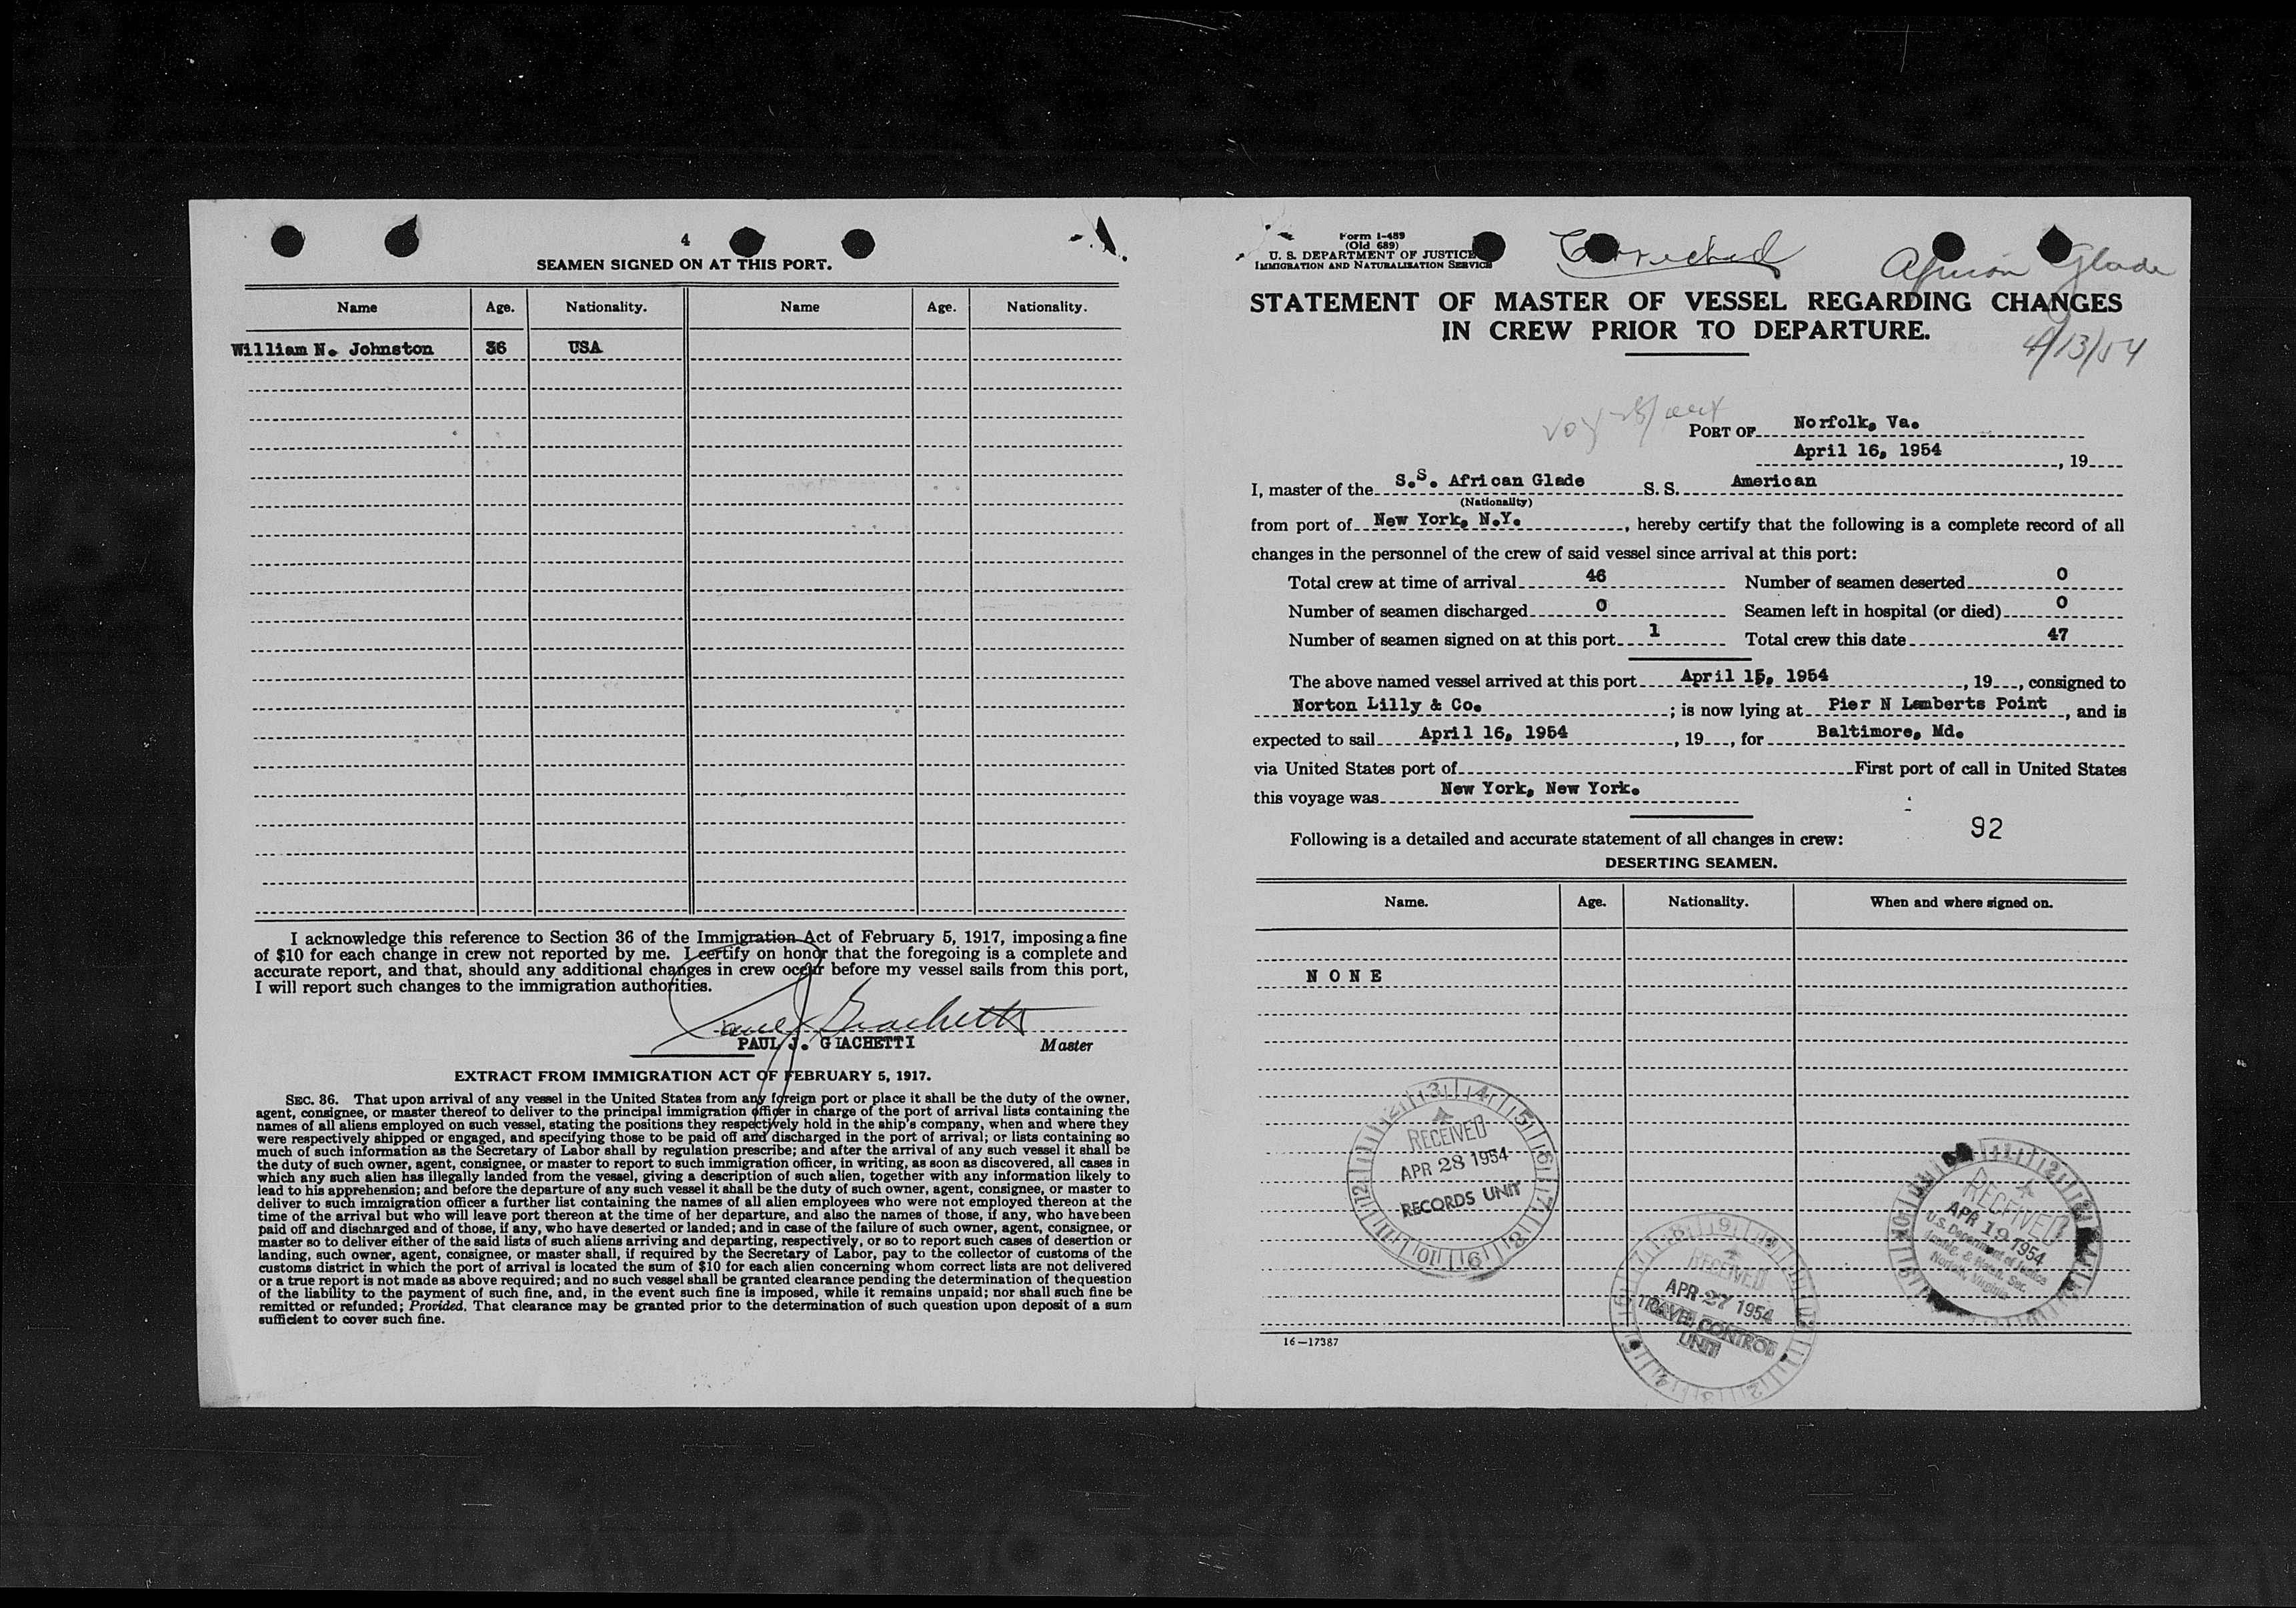 4
SEAMEN SIGNED ON AT THIS PORT.
Name Age. Nationality. Name Age. Nationality.
William N. Johnston 36 USA
I acknowledge this reference to Section 36 of the Immigration Act of February 5, 1917, imposing a fine
of $10 for each change in crew not reported by me. I certify on honor that the foregoing is a complete and
accurate report, and that, should any additional changes in crew occur before my vessel sails from this port,
I will report such changes to the immigration authorities.
Paul J Giachetti
PAUL J. GIACHETTI Master
EXTRACT FROM IMMIGRATION ACT OF FEBRUARY 5, 1917.
SEC. 36. That upon arrival of any vessel in the United States from any foreign port or place it shall be the duty of the owner,
agent, consignee, or master thereof to deliver to the principal immigration officer in charge of the port of arrival lists containing the
names of all aliens employed on such vessel, stating the positions they respectively hold in the ship's company, when and where they
were respectively shipped or engaged, and specifying those to be paid off and discharged in the port of arrival; or lists containing so
much of such information as the Secretary of Labor shall by regulation prescribe; and after the arrival of any such vessel it shall be
the duty of such owner, agent, consignee, or master to report to such immigration officer, in writing, as soon as discovered, all cases in
which any such alien has illegally landed from the vessel, giving a description of such alien, together with any information likely to
lead to his apprehension; and before the departure of any such vessel it shall be the duty of such owner, agent, consignee, or master to
deliver to such immigration officer a further list containing the names of all alien employees who were not employed thereon at the
time of the arrival but who will leave port thereon at the time of her departure, and also the names of those, if any, who have been
paid off and discharged and of those, if any, who have deserted or landed; and in case of the failure of such owner, agent, consignee, or
master so to deliver either of the said lists of such aliens arriving and departing, respectively, or so to report such cases of desertion or
landing, such owner, agent, consignee, or master shall, if required by the Secretary of Labor, pay to the collector of customs of the
customs district in which the port of arrival is located the sum of $10 for each alien concerning whom correct lists are not delivered
or a true report is not made as above required; and no such vessel shall be granted clearance pending the determination of the question
of the liability to the payment of such fine, and, in the event such fine is imposed, while it remains unpaid; nor shall such fine be
remitted or refunded; Provided, That clearance may be granted prior to the determination of such question upon deposit of a sum
sufficient to cover such fine.
Form I-489
(Old 689)
U. S. DEPARTMENT OF JUSTICE
IMMIGRATION AND NATURALIZATION SERVICE
Corrected
African Glade
4/13/54
STATEMENT OF MASTER OF VESSEL REGARDING CHANGES
IN CREW PRIOR TO DEPARTURE.
PORT OF Norfolk, Va.
April 16, 1954, 19
I, master of the S.S. African Glade S. S. American
(Nationality)
from port of New York, N.Y., hereby certify that the following is a complete record of all
changes in the personnel of the crew of said vessel since arrival at this port:
Total crew at time of arrival 46 Number of seamen deserted 0
Number of seamen discharged 0 Seamen left in hospital (or died) 0
Number of seamen signed on at this port 1 Total crew this date 47
The above named vessel arrived at this port April 15, 1954, 19, consigned to
Norton Lilly & Co.; is now lying at Pier N Lamberts Point, and is
expected to sail April 16, 1954, 19, for Baltimore, Md.
via United States port of First port of call in United States
this voyage was New York, New York.
92
Following is a detailed and accurate statement of all changes in crew:
DESERTING SEAMEN.
Name. Age. Nationality. When and where signed on.
N O N E
RECEIVED
APR 28 1954
RECORDS UNIT
RECEIVED
APR 27 1954
TRAVEL CONTROL
UNIT
RECEIVED
APR 19 1954
U.S. Department of Justice
Immig. & Natur. Ser.
Norfolk, Virginia
16—17387